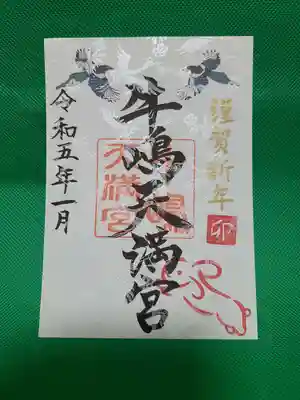 謹賀新年
卯
牛嶋天満宮
天満宮
令和五年一月